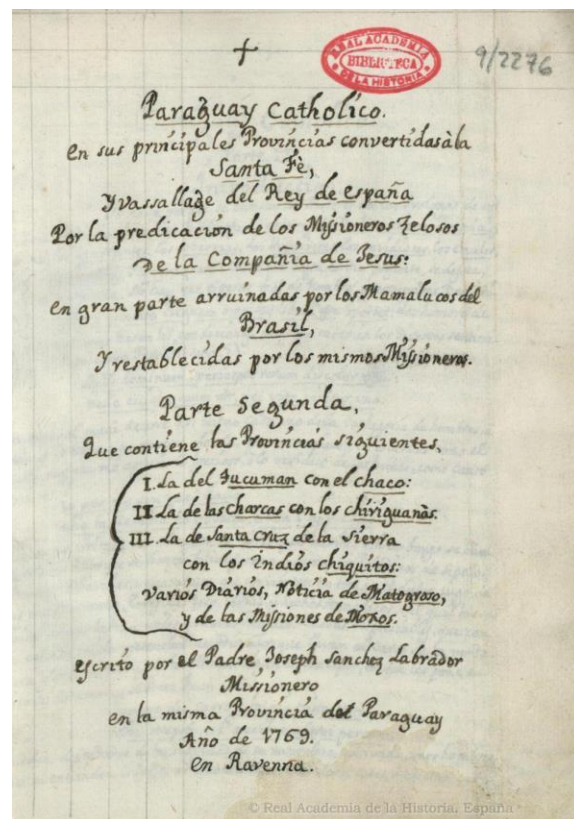 REAL ACADEMIA
BIBLIOTECA
DE LA HISTORIA
9/2276
Paraguay Catholico.
En sus principales Provincias convertidas à la
Santa Fè,
Y vassallage del Rey de España
Por la predicación de los Missioneros zelosos
De la Compañia de Jesus:
en gran parte arruinadas por los Mamalucos del
Brasil,
Y restablecidas por los mismos Missioneros.
Parte Segunda,
Que contiene las Provincias siguientes,
I. La del Tucuman con el chaco:
II La de las charcas con los chiriguanàs.
III. La de Santa Cruz de la Sierra
con los Indios chiquitos:
varios Diarios, Noticia de Matogroso,
y de las Missiones de Moxos.
escrito por el Padre Joseph Sanchez Labrador
Missionero
en la misma Provincia del Paraguay
Año de 1769.
En Ravenna.
© Real Academia de la Historia. España